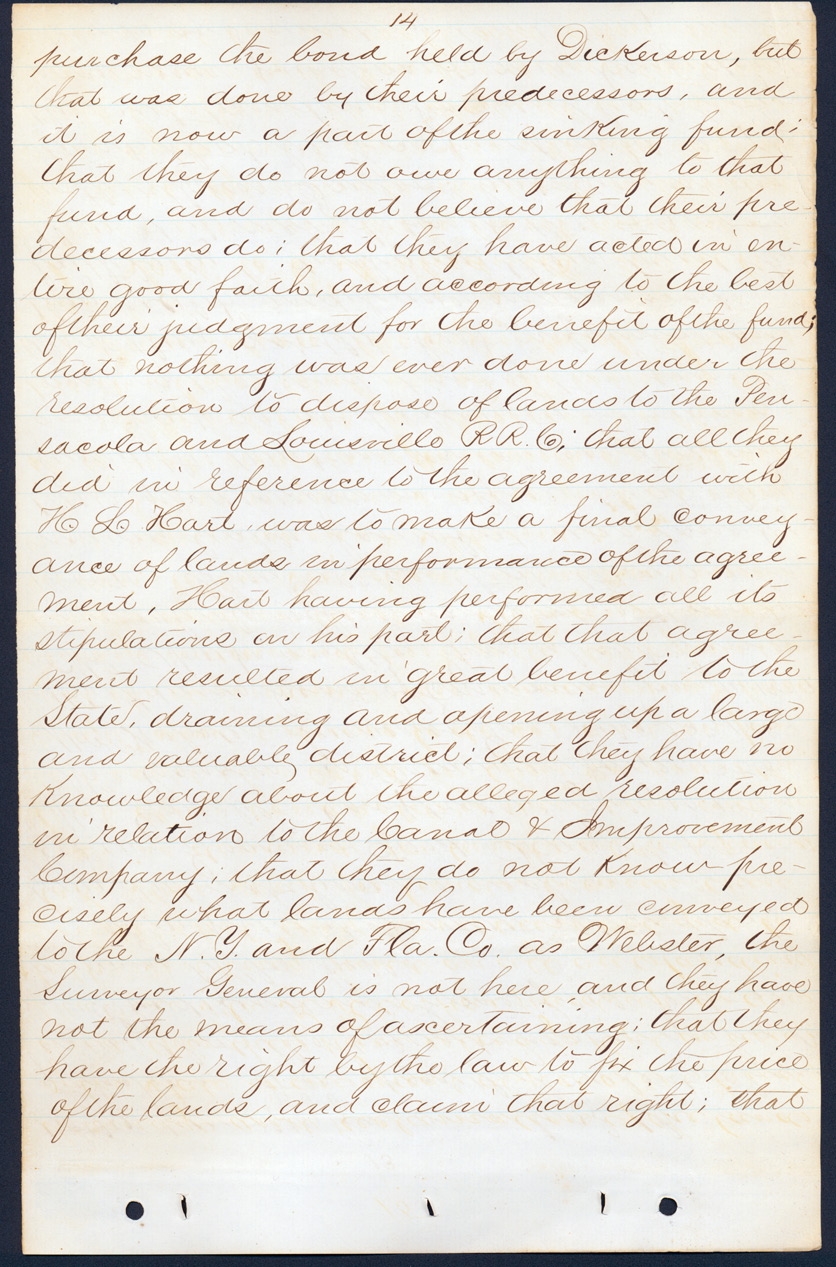 14
purchase the bond held by Dickerson, but
that was done by their predecessors, and
it is now a part of the sinking fund;
that they do not owe anything to that
fund, and do not believe that their pre-
decessors do; that they have acted in en-
tire good faith, and according to the best
of their judgment for the benefit of the fund;
that nothing was ever done under the
resolution to dispose of lands to the Pen-
sacola and Louisville R.R. Co; that all they
did in reference to the agreement with
H L Hart, was to make a final convey-
ance of lands in performance of the agree-
ment, Hart having performed all its
stipulations on his part; that that agree-
ment resulted in great benefit to the
State, draining and opening up a large
and valuable district; that they have no
Knowledge about the alleged resolution
in relation to the Canal & Improvement
Company; that they do not Know pre-
cisely what lands have been conveyed
to the N.Y. and Fla. Co. as Webster, the
Surveyor General is not here, and they have
not the means of ascertaining; that they
have the right by the law to fix the price
of the lands, and claim that right; that